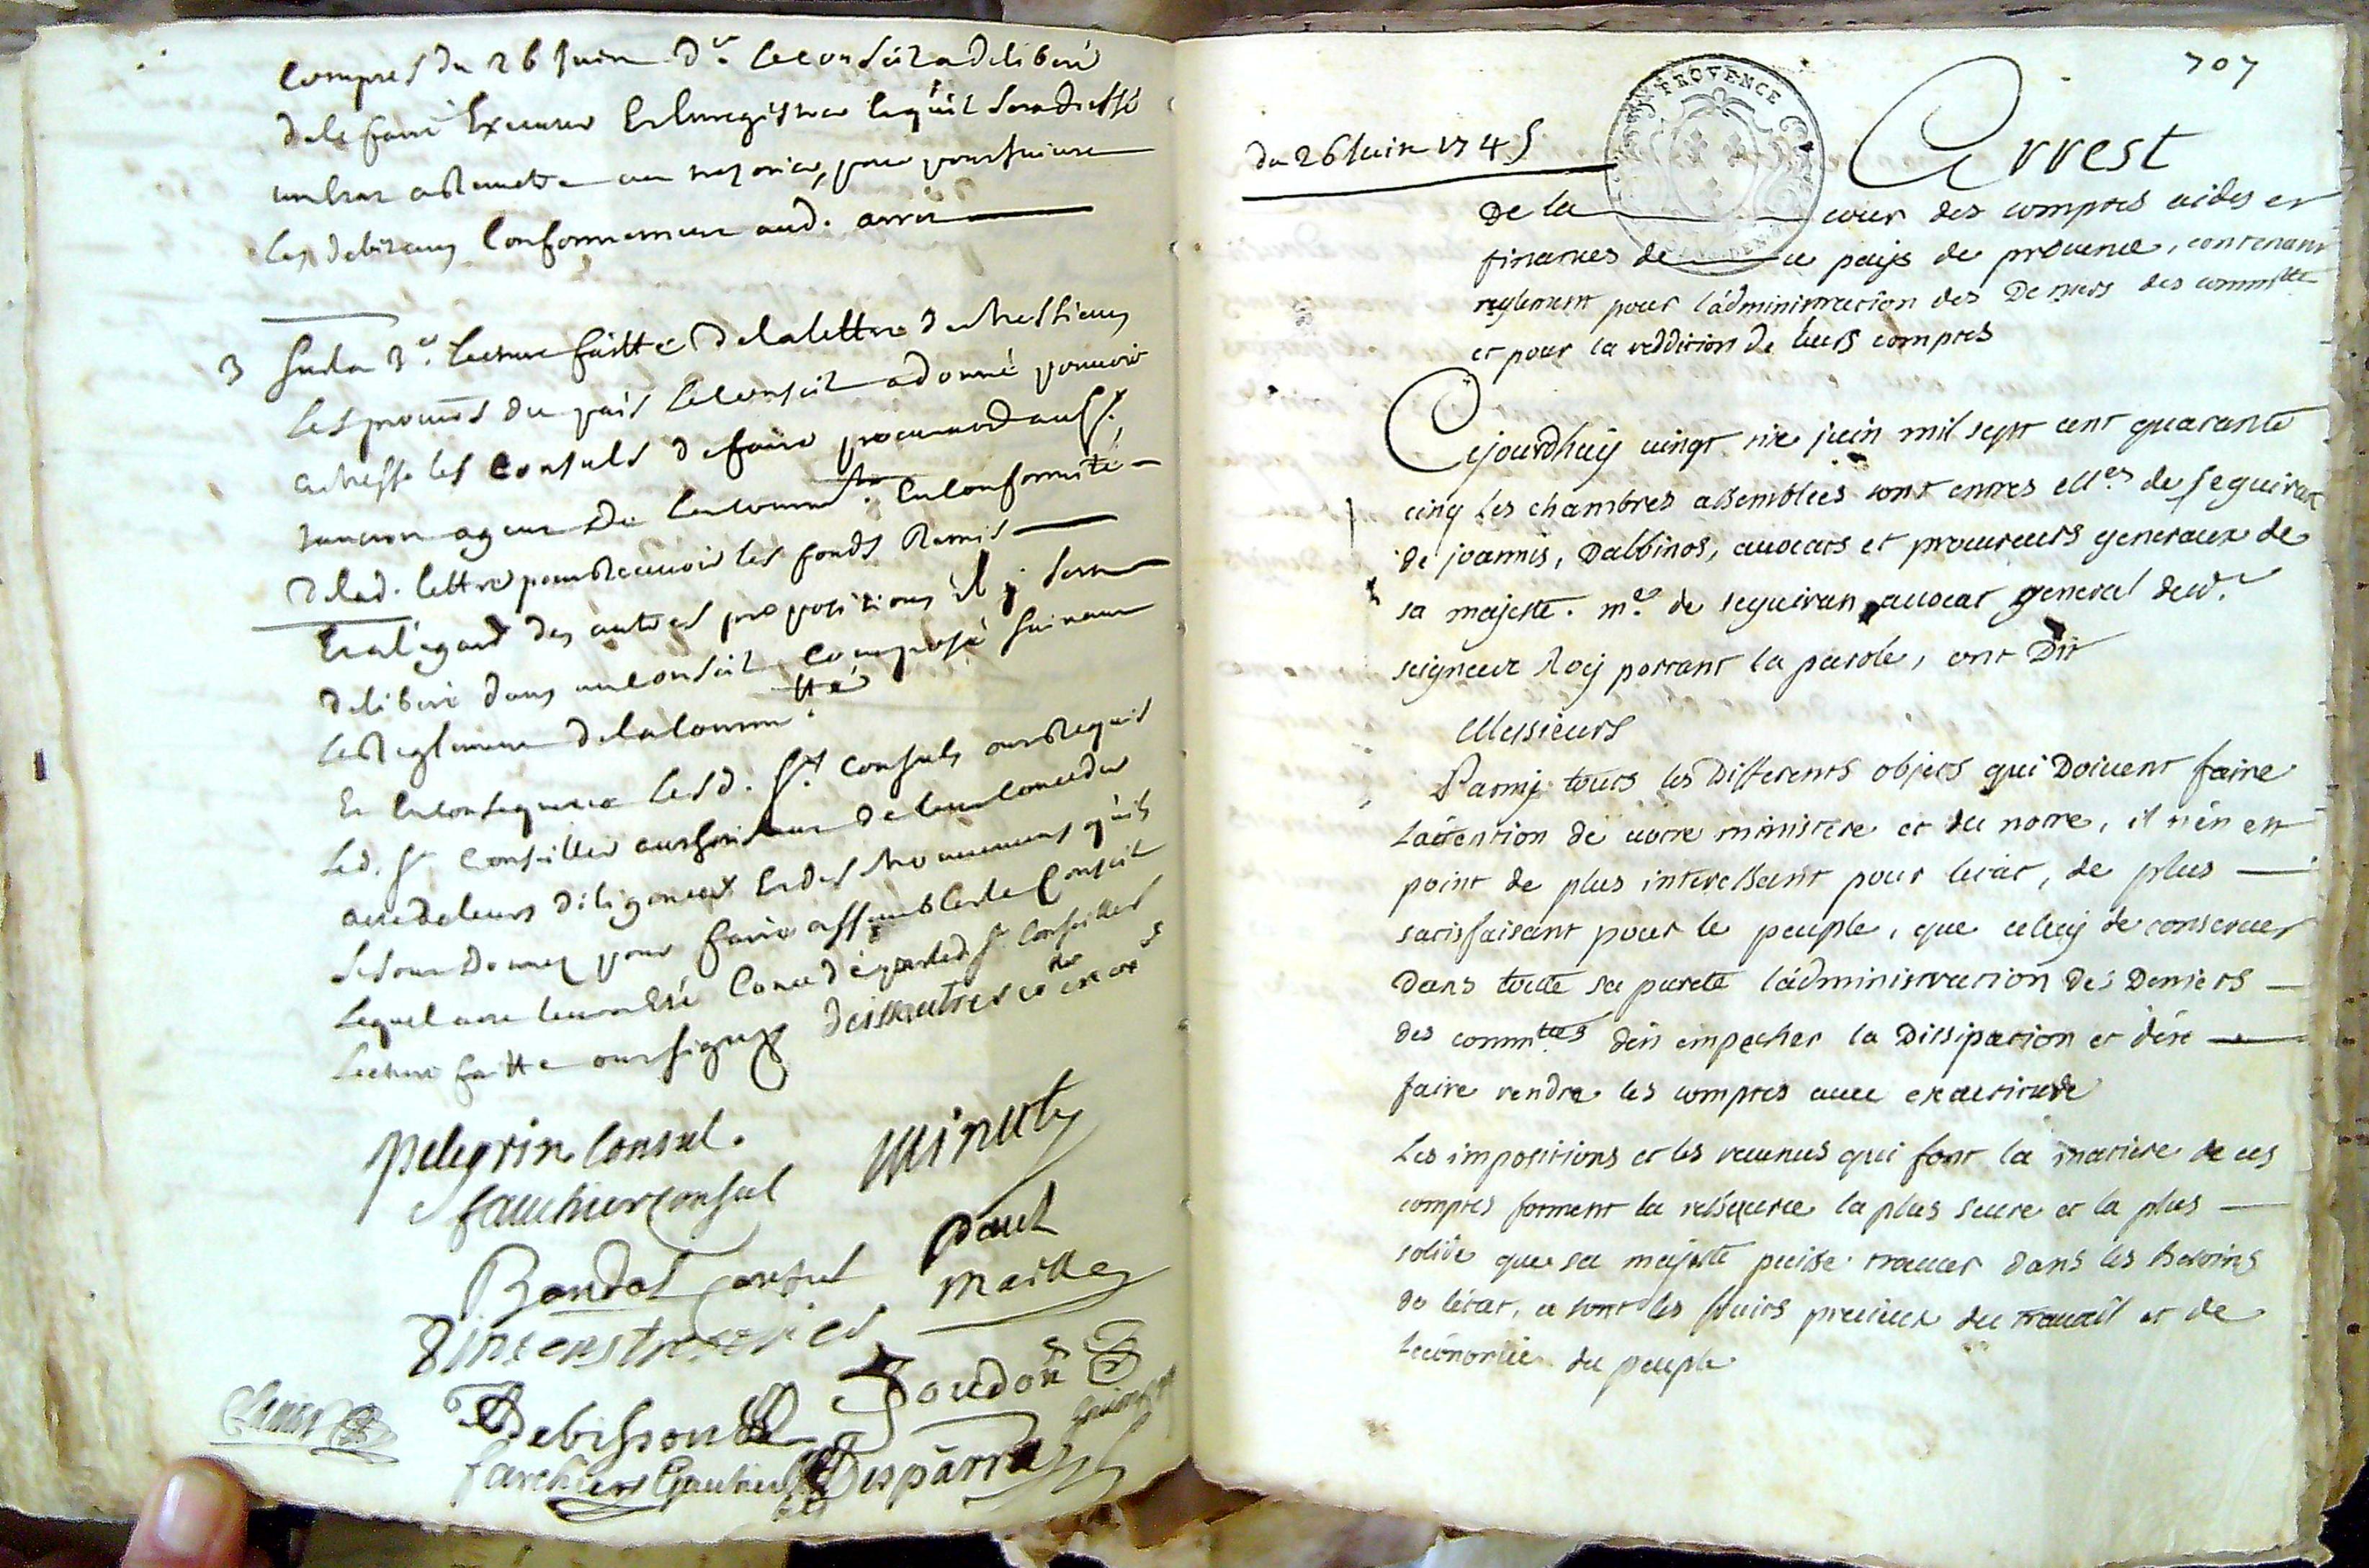 Comptes du 26 Juin d.r le conseil a deliberé
de le faire Executer Et Enregistrer et qu'il sera dressé
un Etat a remettre au trezorier, pour poursuivre
les debiteurs Conformement aud. arret
3 Sur la 3.e lecture faitte de la lettre de Messieurs
les procurs du païs le conseil a donné pouvoir
a messrs les Consuls de faire procuration au Sr.
agent de la comm.té En Conformité
de lad. lettre pour recevoir les fonds Remis
Et a l'egard des autres propositions il y sera
deliberé dans un conseil composé suivant
le Reglement de la Comm.tté
Et En consequence lesd. Srs. Consuls ont Requis
led. Sr. Conseiller de leur conceder
acte de leurs diligences Et des mouvements qu'ils
se sont Donnez pour faire assembler le Conseil
lequel acte leur a été Concedé par led. Sr. Conseiller
Lecture faitte ont signez
Pelegrin Consul. Minuty
fauchier Consul
Boudol Consul Paul
Maille
Debisson Joudon
fauchier Gautier Desparra
707
du 26 Juin 1745
PROVENCE
Arrest
De la cour des comptes aides et
finances de ce pays de provence, contenant
reglement pour l'administration des Deniers des commttes
et pour la reddition de leurs comptes
Cejourdhuy vingt six juin mil sept cent quarante
cinq les chambres assemblées sont entrés Mes. de seguiran
de joannis, Dalbinos, avocats et procureurs generaux de
sa majesté. me. de seguiran avocat general dud.
seigneur Roy portant la parole, ont Dit
Messieurs
Parmy touts les Differents objets qui Doivent faire
l'attention de votre ministere et du notre, il n'en est
point de plus interessant pour l'etat, de plus
satisfaisant pour le peuple, que celuy de conserver
Dans toutte sa pureté l'administration des Deniers
des commtées d'en empecher la Dissipation et d'en
faire rendre les comptes avec exactitude
Les impositions et les revenus qui font la matiere de ces
comptes forment la ressource la plus seure et la plus
solide que sa majesté puisse trouver dans les Besoins
de l'etat, ce sont les fruits precieux du travail et de
l'economie du peuple